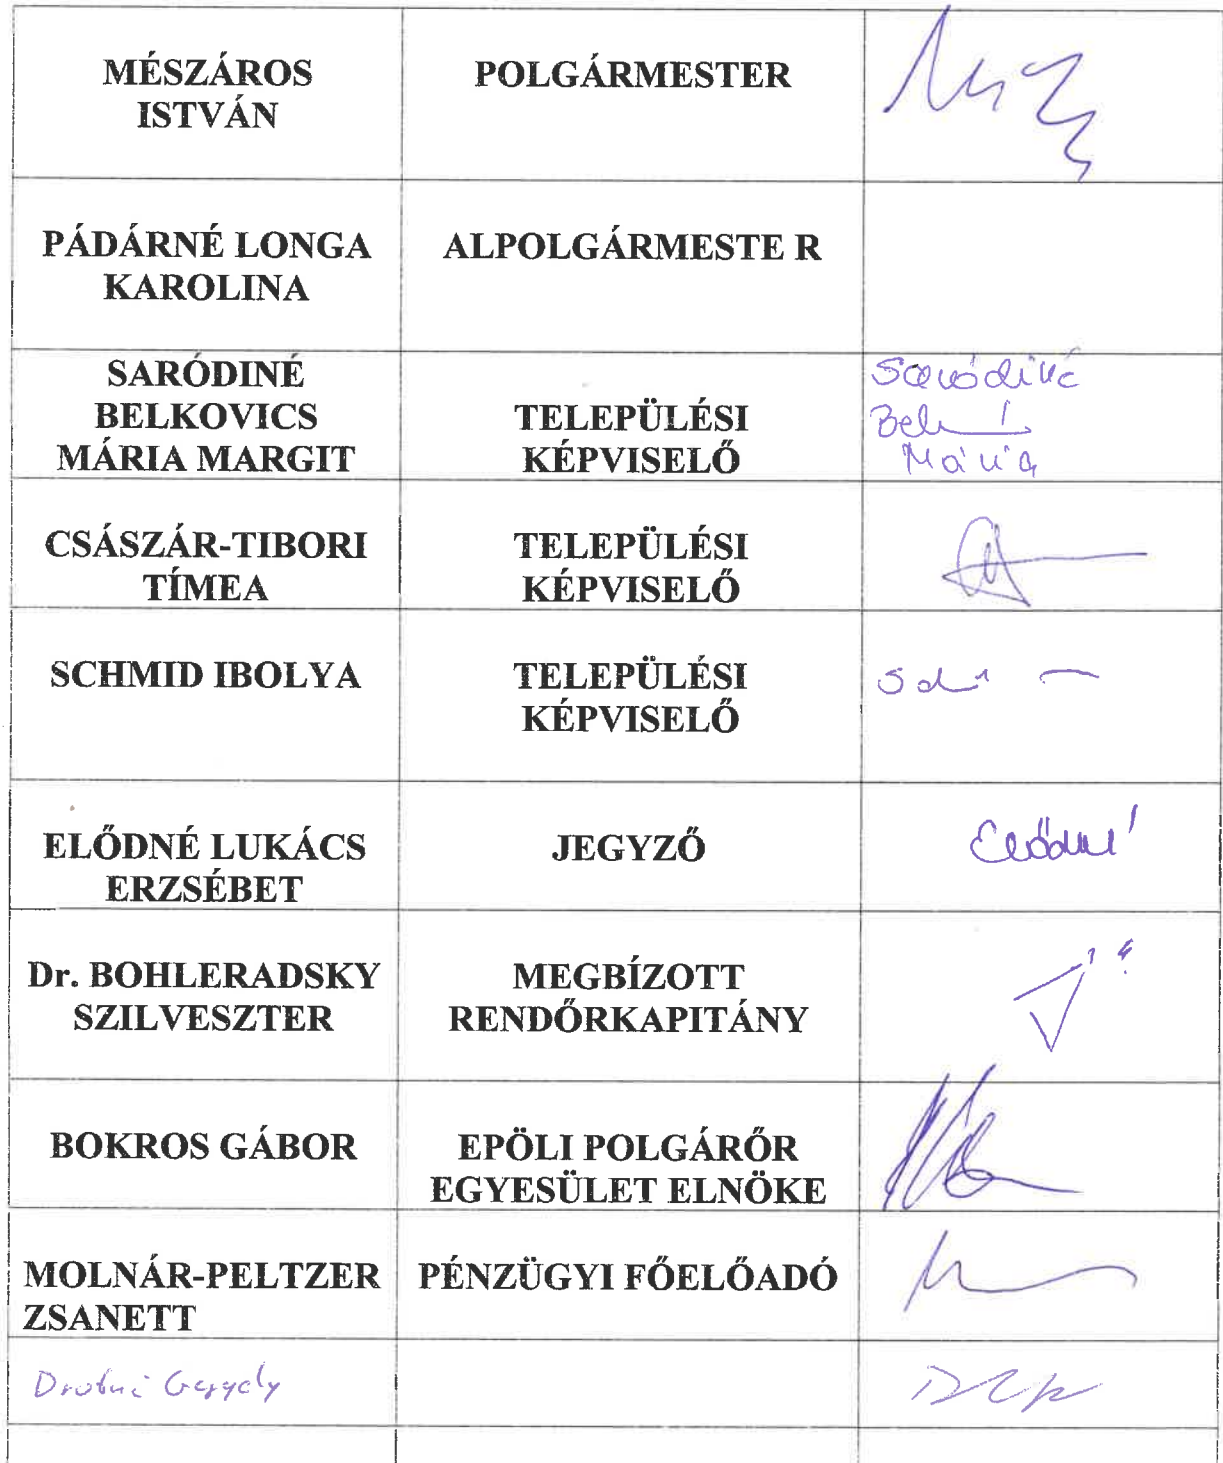 MÉSZÁROS
ISTVÁN
POLGÁRMESTER
PÁDÁRNÉ LONGA
KAROLINA
ALPOLGÁRMESTE R
SARÓDINÉ
BELKOVICS
MÁRIA MARGIT
TELEPÜLÉSI
KÉPVISELŐ
Saródiné
Mária
CSÁSZÁR-TIBORI
TÍMEA
TELEPÜLÉSI
KÉPVISELŐ
SCHMID IBOLYA
TELEPÜLÉSI
KÉPVISELŐ
ELŐDNÉ LUKÁCS
ERZSÉBET
JEGYZŐ
Elődné
Dr. BOHLERADSKY
SZILVESZTER
MEGBÍZOTT
RENDŐRKAPITÁNY
BOKROS GÁBOR
EPÖLI POLGÁRŐR
EGYESÜLET ELNÖKE
MOLNÁR-PELTZER
ZSANETT
PÉNZÜGYI FŐELŐADÓ
Gergely